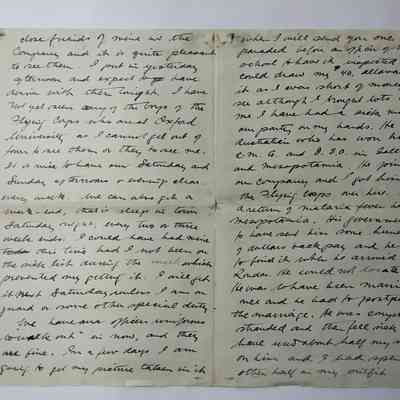 close friends of mine in the
Company and it is quite pleasant
to see them. I put in yesterday
afternoon and expect to have
dinner with them tonight. I have
not yet seen any of the boys of the
Flying Corps who are at Oxford
University, as I cannot get out of
town to see them or they to see me.
It is nice to have our Saturday and
Sunday afternoons or evenings clear
every week. We can also get a
week-end, that is sleep in town
Saturday night, every two or three
week ends. I could have had mine
this time had I not been on
the sick list during the week which
prevented my getting it. I will get
it next Saturday, unless I am on
guard or some other special duty.
We have our officers uniforms
to "walk out" in now, and they
are fine. In a few days I am
going to get my picture taken in it
when I will send you one
paraded before an officer of the
school to have it inspected
could draw my "40. allowance
it as I was short of money
see although I brought lots
me I have had a sick m
our party on my hands. He
Australian who has won h
C.M.G. and D.S.O. in Gall
and Mesopotamia. He joined
our company and I got him
the Flying Corps over here.
a return of malaria fever he
Mesopotamia. His government
to have sent him some hun
of dollars back pay and he
to find it when he arrived
London. He could not locate
He was to have been married
me and he had to postpone
the marriage. He was comp
stranded and then fell sick
have used about half my m
on him and I had spen
other half on my outfit